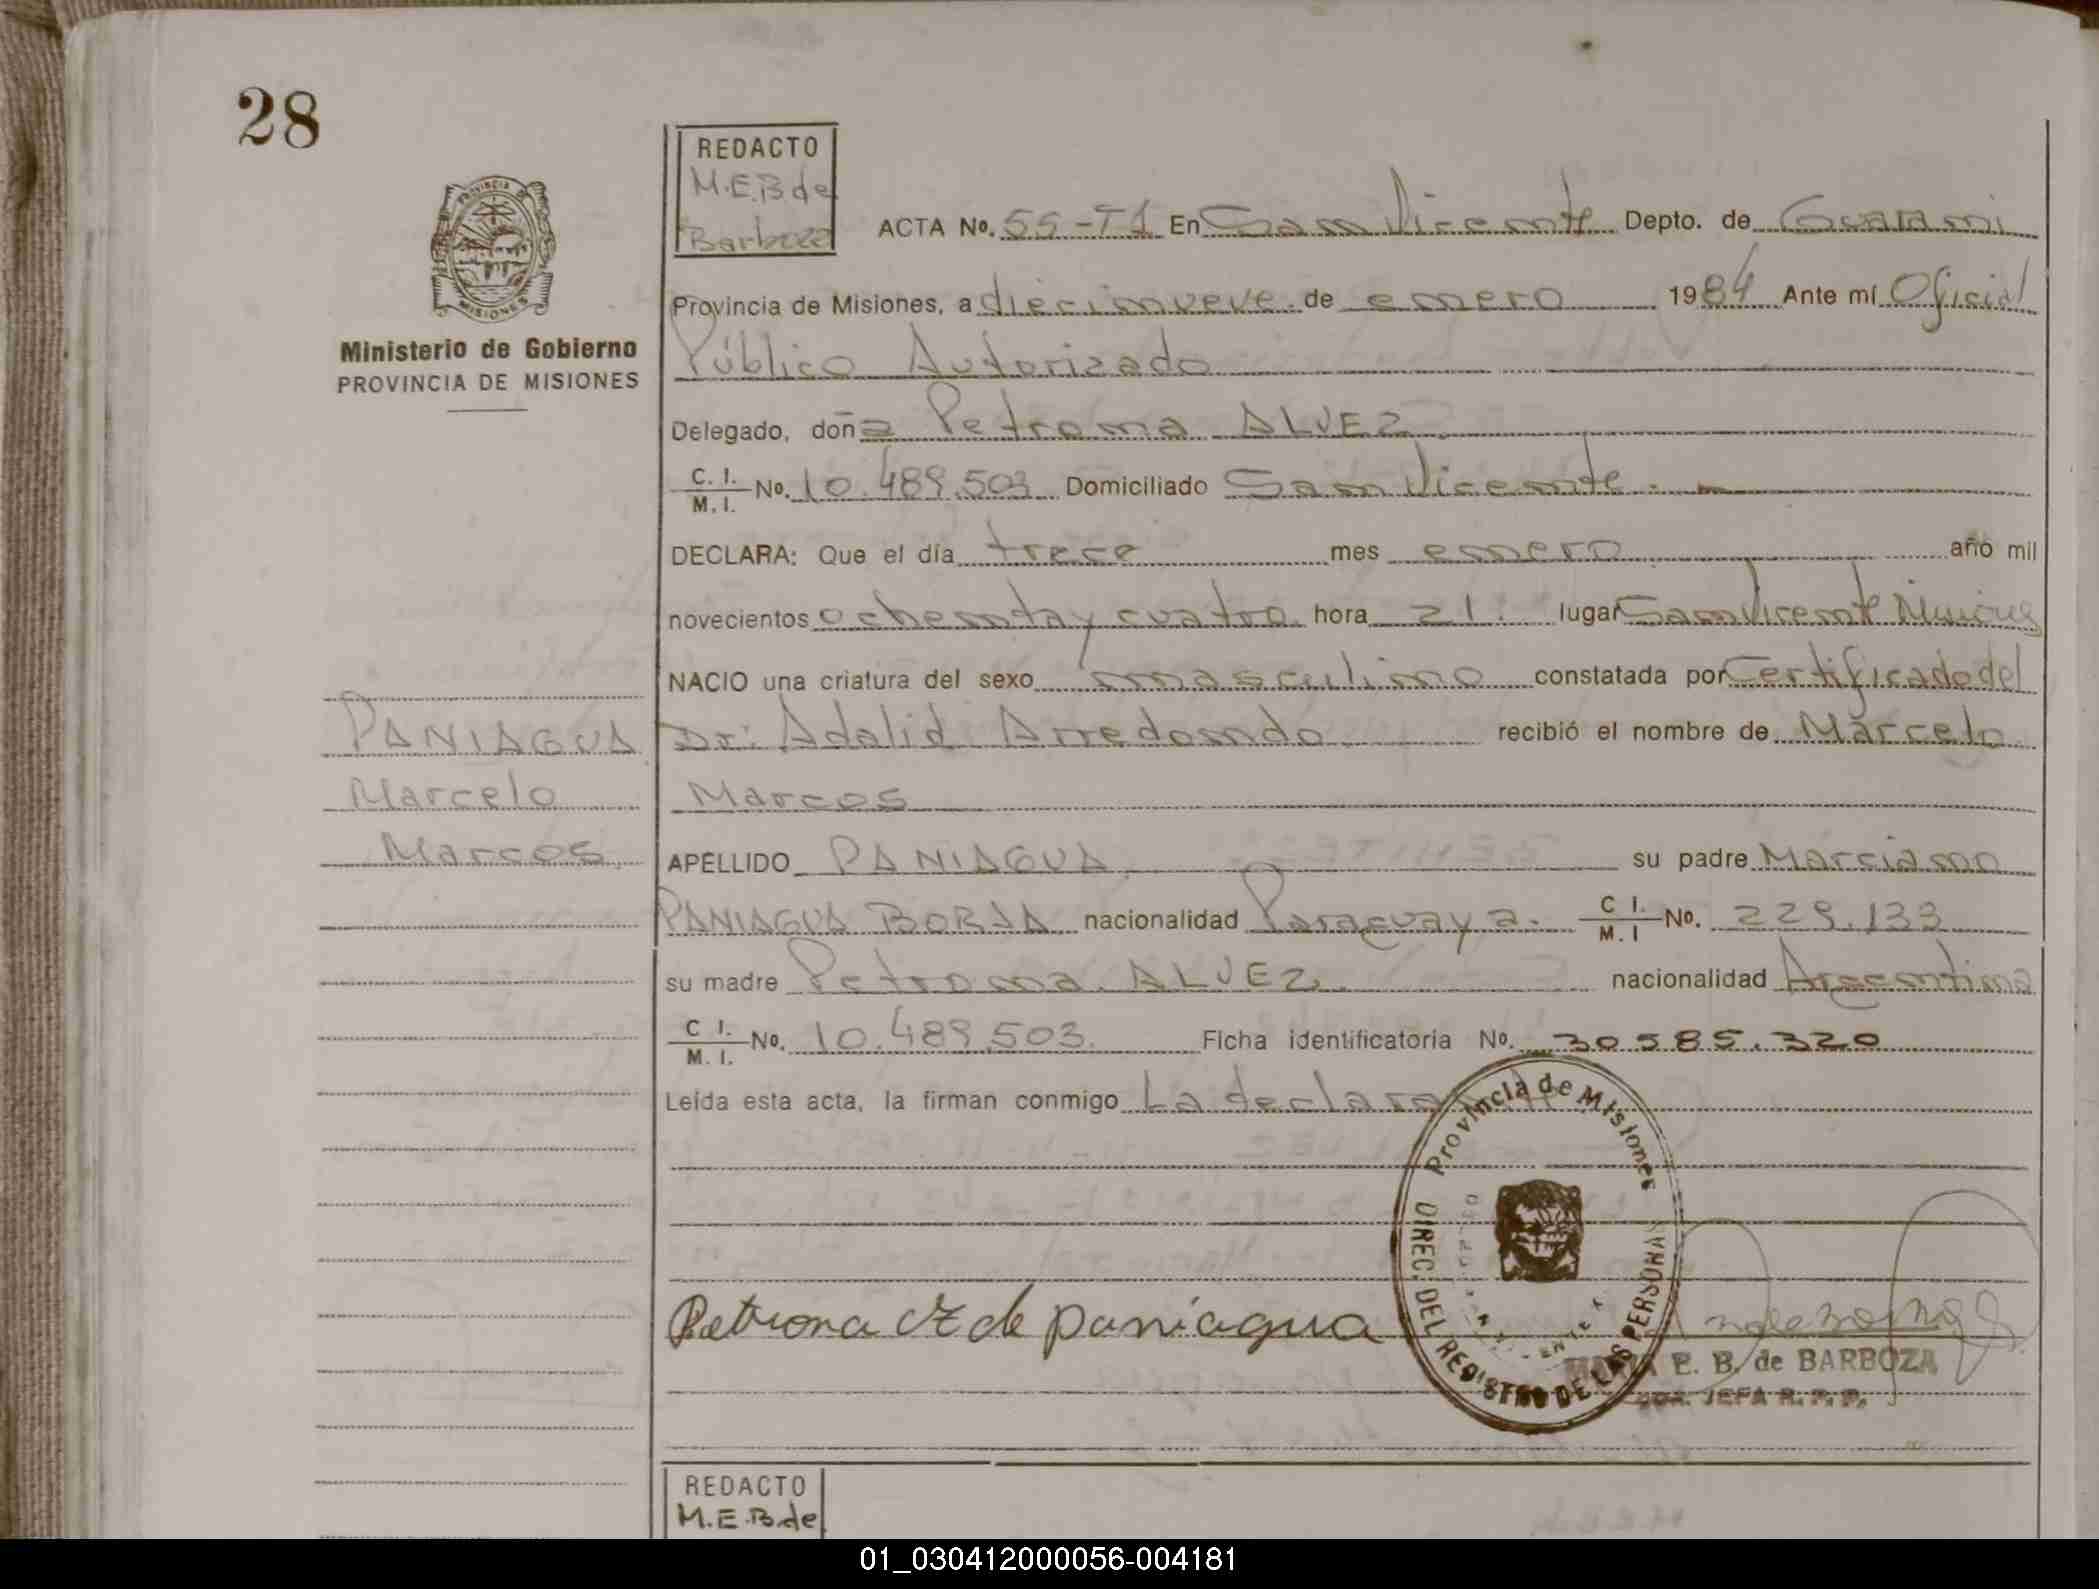 28
REDACTO
M.E.B de
Barboza
PROVINCIA DE
MISIONES
Ministerio de Gobierno
PROVINCIA DE MISIONES
ACTA Nº. 55-T1 En San Vicente Depto. de Guaraní
Provincia de Misiones, a diecinueve de enero 1984 Ante mí Oficial
Público Autorizado
Delegado, doña Petrona ALVEZ
C. I. / M. I. Nº. 10.489.503 Domiciliado San Vicente.
DECLARA: Que el día trece mes enero año mil
novecientos ochenta y cuatro hora 21. lugar San Vicente Misiones
NACIO una criatura del sexo masculino constatada por Certificado del
Dr: Adalid Arredondo recibió el nombre de Marcelo
Marcos
PANIAGUA
Marcelo
Marcos
APELLIDO PANIAGUA su padre Marciano
PANIAGUA BORJA nacionalidad Paraguaya. C I. / M. I Nº. 229.133
su madre Petrona ALVEZ. nacionalidad Argentina
C I. / M. I. Nº. 10.489.503. Ficha identificatoria Nº. 30585.320
Leída esta acta, la firman conmigo La declarante
Provincia de Misiones
DIREC. DEL REGISTRO DE LAS PERSONAS
Petrona de paniagua
E. B. de BARBOZA
JEFA R. P. P.
REDACTO
M.E.B.de
01_030412000056-004181